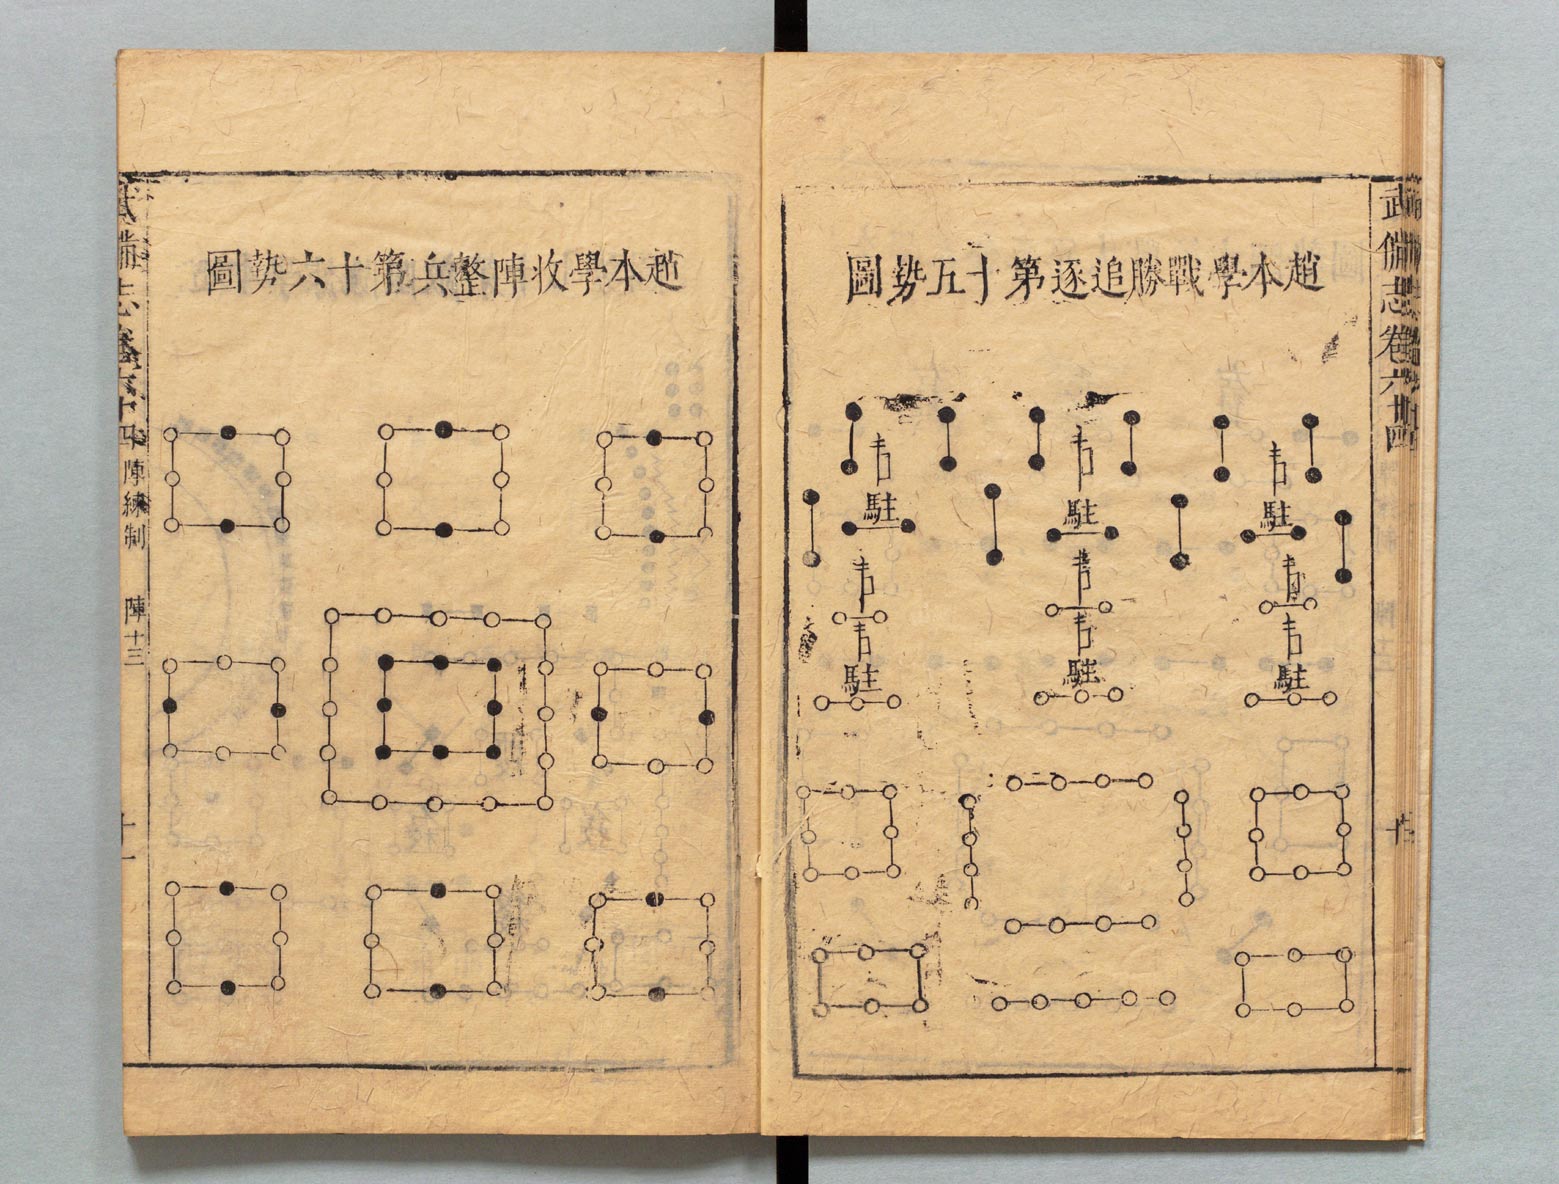 武備志卷六十四
趙本學戰勝追逐第十五勢圖
駐 駐 駐
駐 駐 駐
趙本學收陣整兵第十六勢圖
武備志卷六十四 陣練制 陣十三 十一